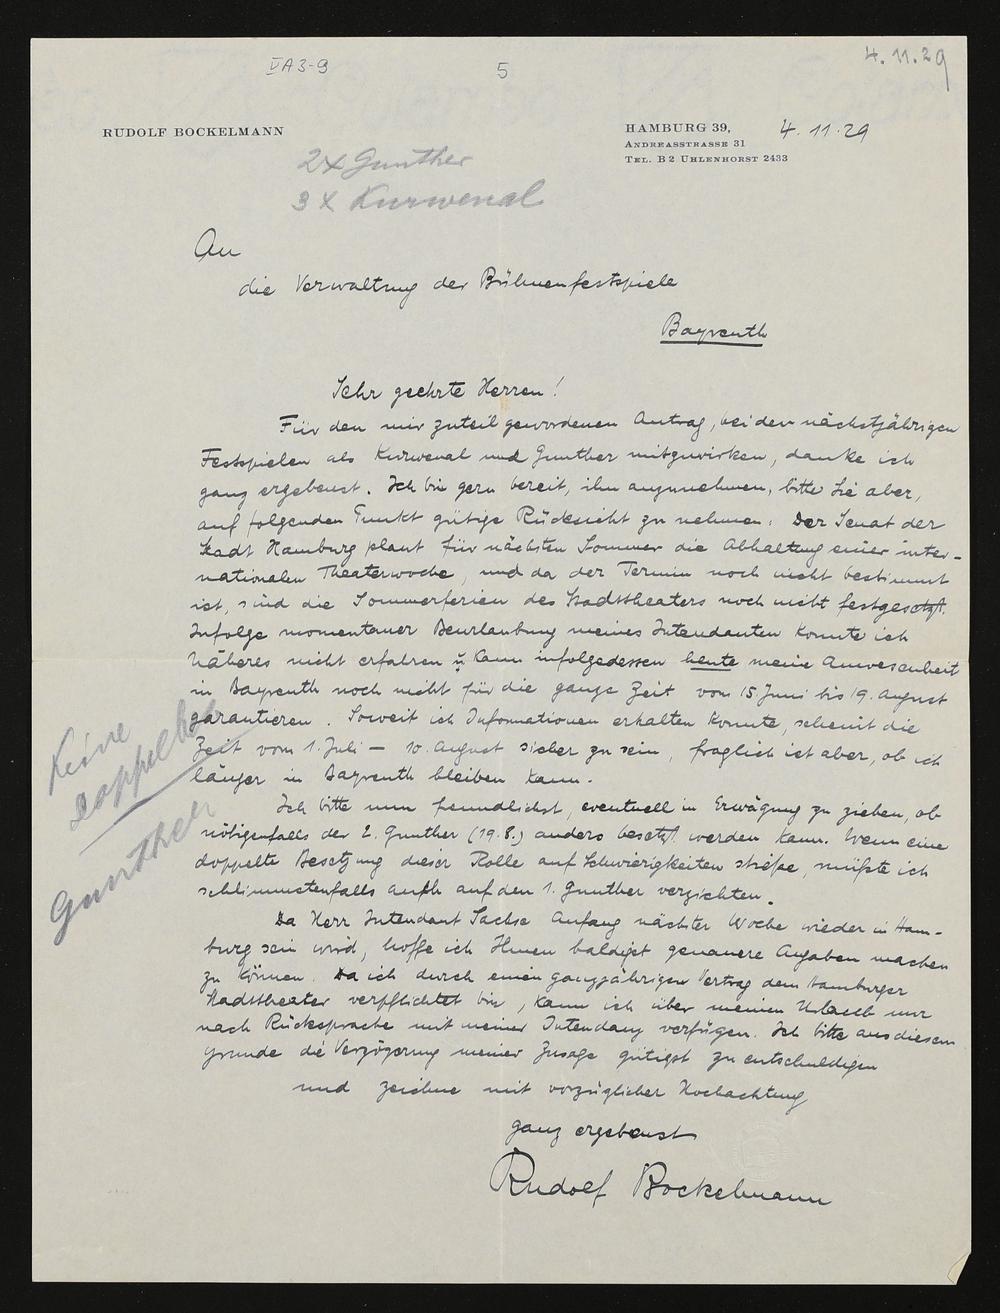 VA3-9
5
4.11.29
RUDOLF BOCKELMANN
HAMBURG 39, 4.11.29
ANDREASSTRASSE 31
TEL. B 2 UHLENHORST 2433
2x Gunther
3x Kurwenal
An
die Verwaltung der Bühnenfestspiele
Bayreuth
Sehr geehrte Herren!
Für den mir zuteil gewordenen Antrag, bei den nächstjährigen
Festspielen als Kurwenal und Gunther mitzuwirken, danke ich
ganz ergebenst. Ich bin gern bereit, ihn anzunehmen, bitte Sie aber,
auf folgenden Punkt gütige Rücksicht zu nehmen: Der Senat der
Stadt Hamburg plant für nächsten Sommer die Abhaltung einer inter-
nationalen Theaterwoche, und da der Termin noch nicht bestimmt
ist, sind die Sommerferien des Stadttheaters noch nicht festgesetzt.
Infolge momentaner Beurlaubung meines Intendanten konnte ich
Näheres nicht erfahren u. kann infolgedessen heute meine Anwesenheit
in Bayreuth noch nicht für die ganze Zeit vom 15. Juni bis 19. August
garantieren. Soweit ich Informationen erhalten konnte, scheint die
Zeit vom 1. Juli – 10. August sicher zu sein, fraglich ist aber, ob ich
länger in Bayreuth bleiben kann.
Keine
Gunther
Ich bitte nun freundlichst, eventuell in Erwägung zu ziehen, ob
nötigenfalls der 2. Gunther (19.8.) anders besetzt werden kann. Wenn eine
doppelte Besetzung dieser Rolle auf Schwierigkeiten stieße, müßte ich
schlimmstenfalls auch auf den 1. Gunther verzichten.
Da Herr Intendant Sachse Anfang nächster Woche wieder in Ham-
burg sein wird, hoffe ich Ihnen baldigst genauere Angaben machen
zu können. Da ich durch einen ganzjährigen Vertrag dem Hamburger
Stadttheater verpflichtet bin, kann ich über meinen Urlaub nur
nach Rücksprache mit meiner Intendanz verfügen. Ich bitte aus diesem
Grunde die Verzögerung meiner Zusage gütigst zu entschuldigen
und zeichne mit vorzüglicher Hochachtung
ganz ergebenst
Rudolf Bockelmann